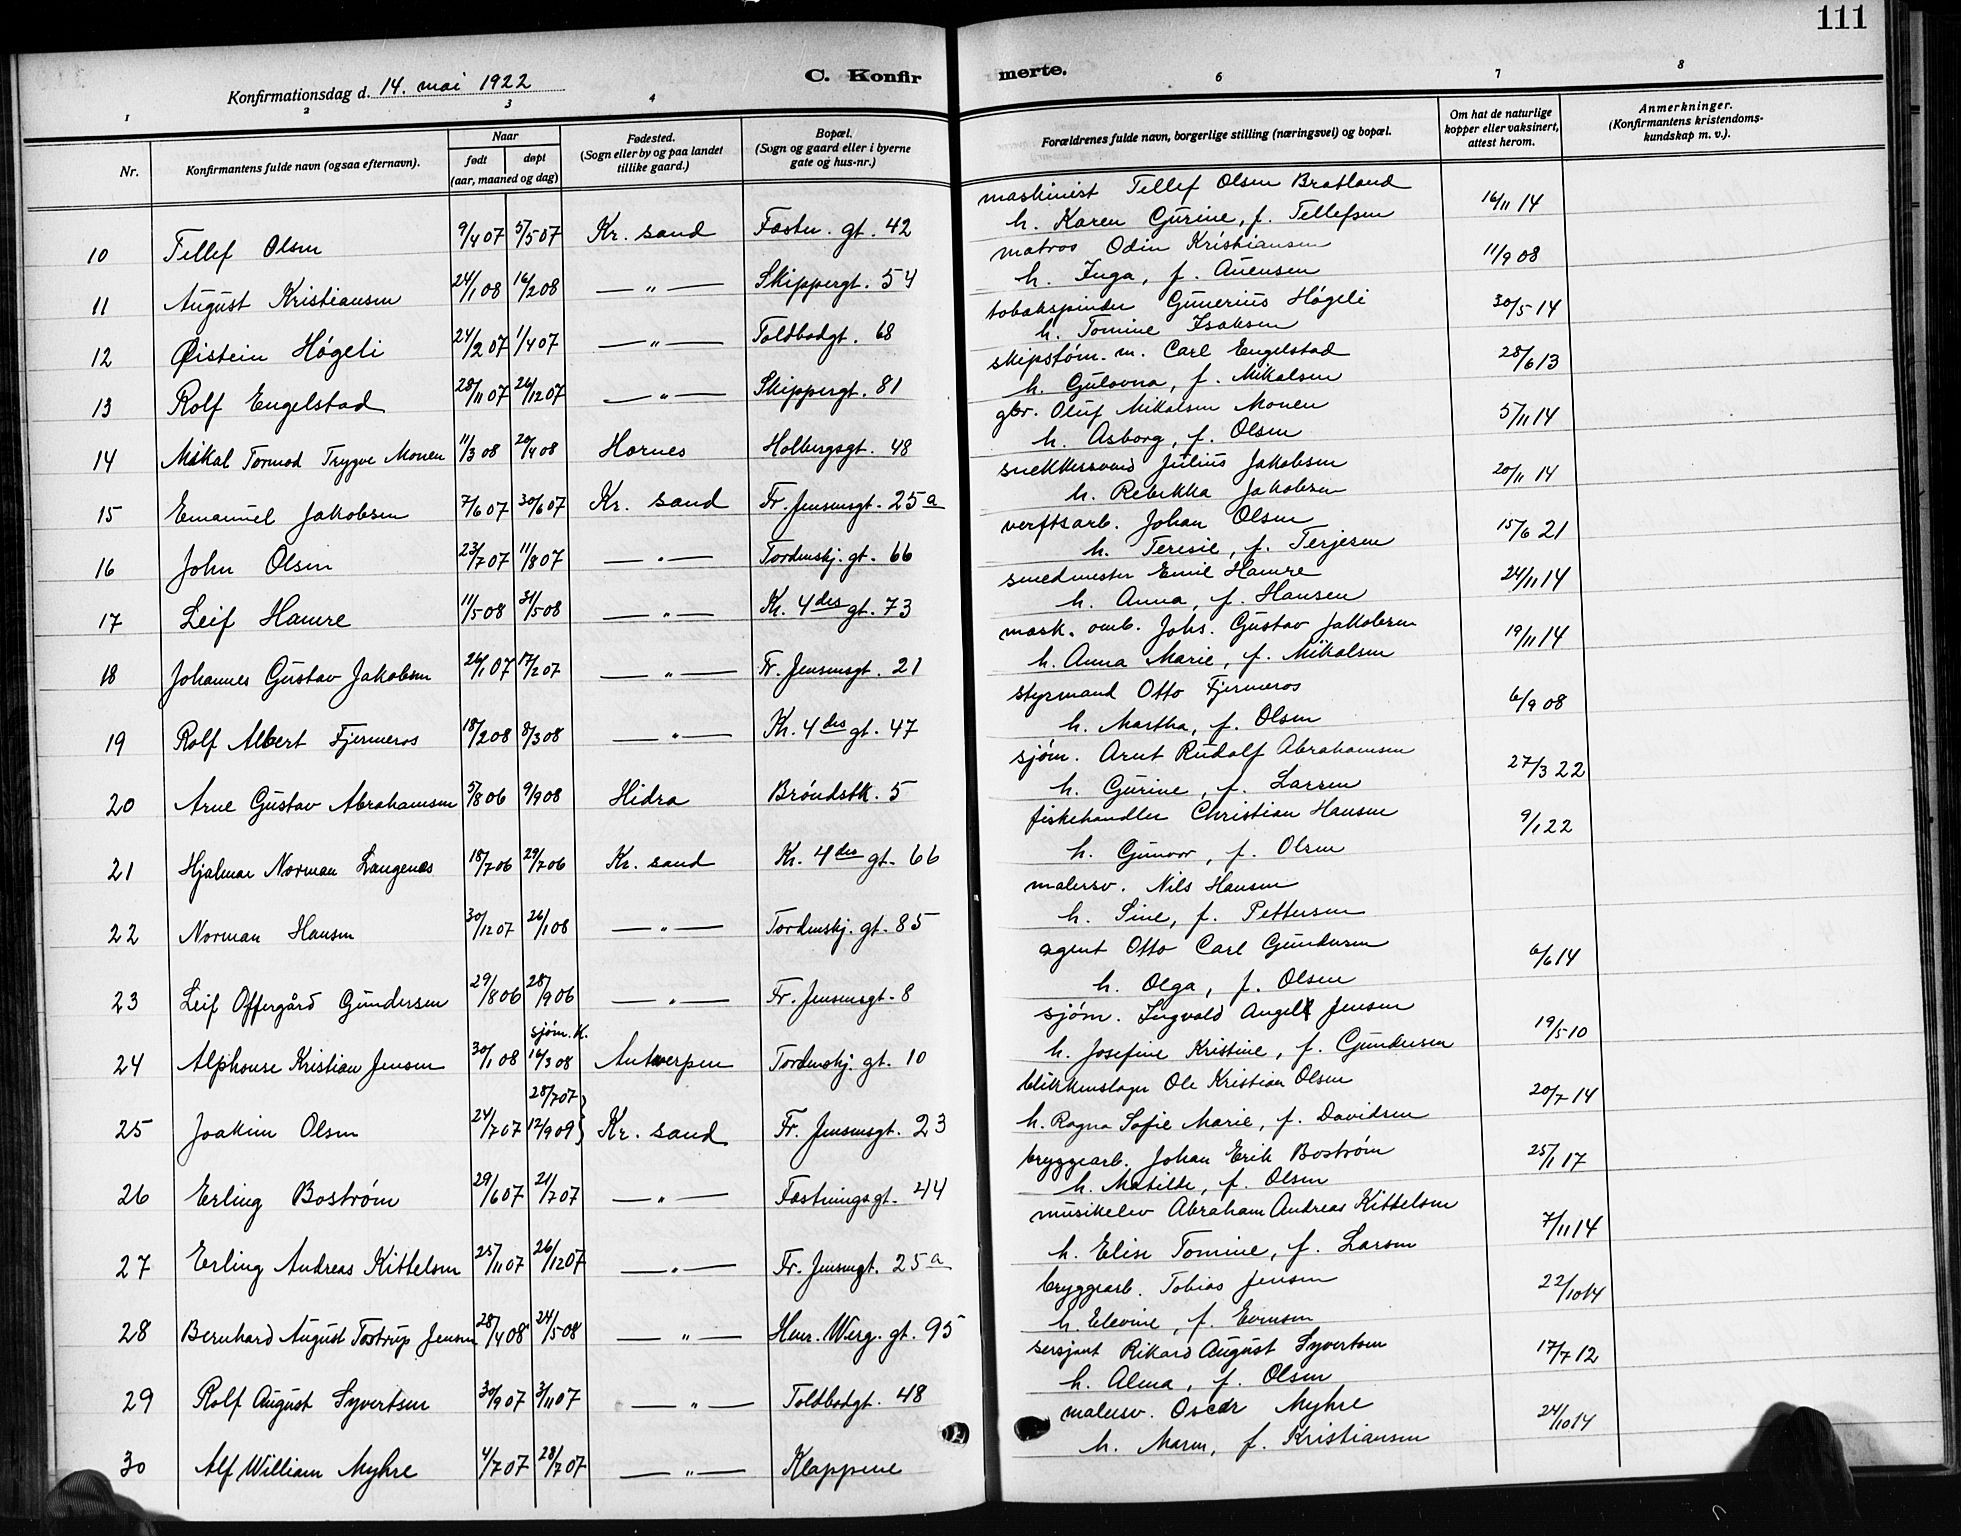 111
Konfirmationsdag d. 14. mai 1922
C. Konfir
merte.
1 2 3 4 6 7 8
Nr.
Konfirmantens fulde navn (ogsaa efternavn).
Naar
født døpt
(aar, maaned og dag)
Fødested.
(Sogn eller by og paa landet
tillike gaard.)
Bopæl.
(Sogn og gaard eller i byerne
gate og hus-nr.)
Forældrenes fulde navn, borgerlige stilling (næringsvei) og bopæl.
Om hat de naturlige
kopper eller vaksinert,
attest herom.
Anmerkninger.
(Konfirmantens kristendoms-
kundskap m. v.).
10 Tellef Olsen 9/4 07 5/5 07 Kr. sand Fæstn. gt. 42
maskinist Tellef Olsen Bratland 16/11 14
h. Karen Gurine, f. Tellefsen
11 August Kristiansen 24/1 08 16/2 08 — „ — Skippergt. 54
matros Odin Kristiansen 11/9 08
h. Inga, f. Auensen
12 Øistein Høgeli 24/2 07 1/4 07 — „ — Toldbodgt. 68
tobakspinder Gunerius Høgeli 30/5 14
h. Tomine Isaksen
13 Rolf Engelstad 28/11 07 26/12 07 — „ — Skippergt. 81
skipsføm. m. Carl Engelstad 28/6 13
h. Gulovna, f. Mikalsen
14 Mikal Tormod Trygve Monen 11/3 08 20/4 08 Hornes Holbergsgt. 48
gbr. Oluf Mikalsen Monen 5/11 14
h. Asborg, f. Olsen
15 Emanuel Jakobsen 7/6 07 30/6 07 Kr. sand Fr. Jensensgt. 25a
snekkersvend Julius Jakobsen 20/11 14
h. Rebekka Jakobsen
16 John Olsen 23/7 07 11/8 07 — „ — Tordenskj. gt. 66
verftsarb. Johan Olsen 15/6 21
h. Teresie, f. Terjesen
17 Leif Hamre 11/5 08 31/5 08 — „ — Kr. 4des gt. 73
smedmester Emil Hamre 24/11 14
h. Anna, f. Hansen
18 Johannes Gustav Jakobsen 26/1 07 17/2 07 — „ — Fr. Jensensgt. 21
mask. omb. Johs. Gustav Jakobsen 19/11 14
h. Anna Marie, f. Mikalsen
19 Rolf Albert Fjermeros 18/2 08 8/3 08 — „ — Kr. 4des gt. 47
styrmand Otto Fjermeros 6/9 08
h. Martha, f. Olsen
20 Arne Gustav Abrahamsen 5/8 06 9/9 08 Hidra Brøndstk. 5
sjøm. Arnt Rudolf Abrahamsen 27/3 22
h. Gurine, f. Larsen
21 Hjalmar Norman Langenes 18/7 06 29/7 06 Kr. sand Kr. 4des gt. 66
fiskehandler Christian Hansen 9/1 22
h. Gunvor, f. Olsen
22 Norman Hansen 30/12 07 26/1 08 — „ — Tordenskj. gt. 85
malersv. Nils Hansen
h. Sine, f. Pettersen
23 Leif Offergård Gundersen 29/8 06 28/9 06 — „ — Fr. Jensensgt. 8
agent Otto Carl Gundersen 6/6 14
h. Olga, f. Olsen
sjøm. K.
24 Alphonse Kristian Jensen 30/1 08 16/3 08 Antwerpen Tordenskj. gt. 10
sjøm. Ingvald Angell Jensen 19/5 10
h. Josefine Kristine, f. Gundersen
28/7 07
25 Joakim Olsen 24/7 07 12/9 09 Kr. sand Fr. Jensensgt. 23
blikkenslager Ole Kristian Olsen 20/7 14
h. Ragna Sofie Marie, f. Davidsen
26 Erling Bostrøm 29/6 07 21/7 07 — „ — Fæstningsgt. 44
bryggearb. Johan Erik Bostrøm 25/1 17
h. Matilde, f. Olsen
27 Erling Andreas Kittelsen 25/11 07 26/12 07 — „ — Fr. Jensengt. 25a
musikelev Abraham Andreas Kittelsen 7/11 14
h. Elise Tomine, f. Larsen
28 Bernhard August Tostrup Jensen 28/4 08 24/5 08 — „ — Henr. Werg. gt. 95
bryggearb. Tobias Jensen 22/10 14
h. Elevine, f. Evensen
29 Rolf August Syvertsen 30/9 07 3/11 07 — „ — Toldbodgt. 48
sersjant Rikard August Syvertsen 17/7 12
h. Alma, f. Olsen
30 Alf William Myhre 4/7 07 28/7 07 — „ — Klappene
malersv. Oscar Myhre 24/10 14
h. Maren, f. Kristiansen